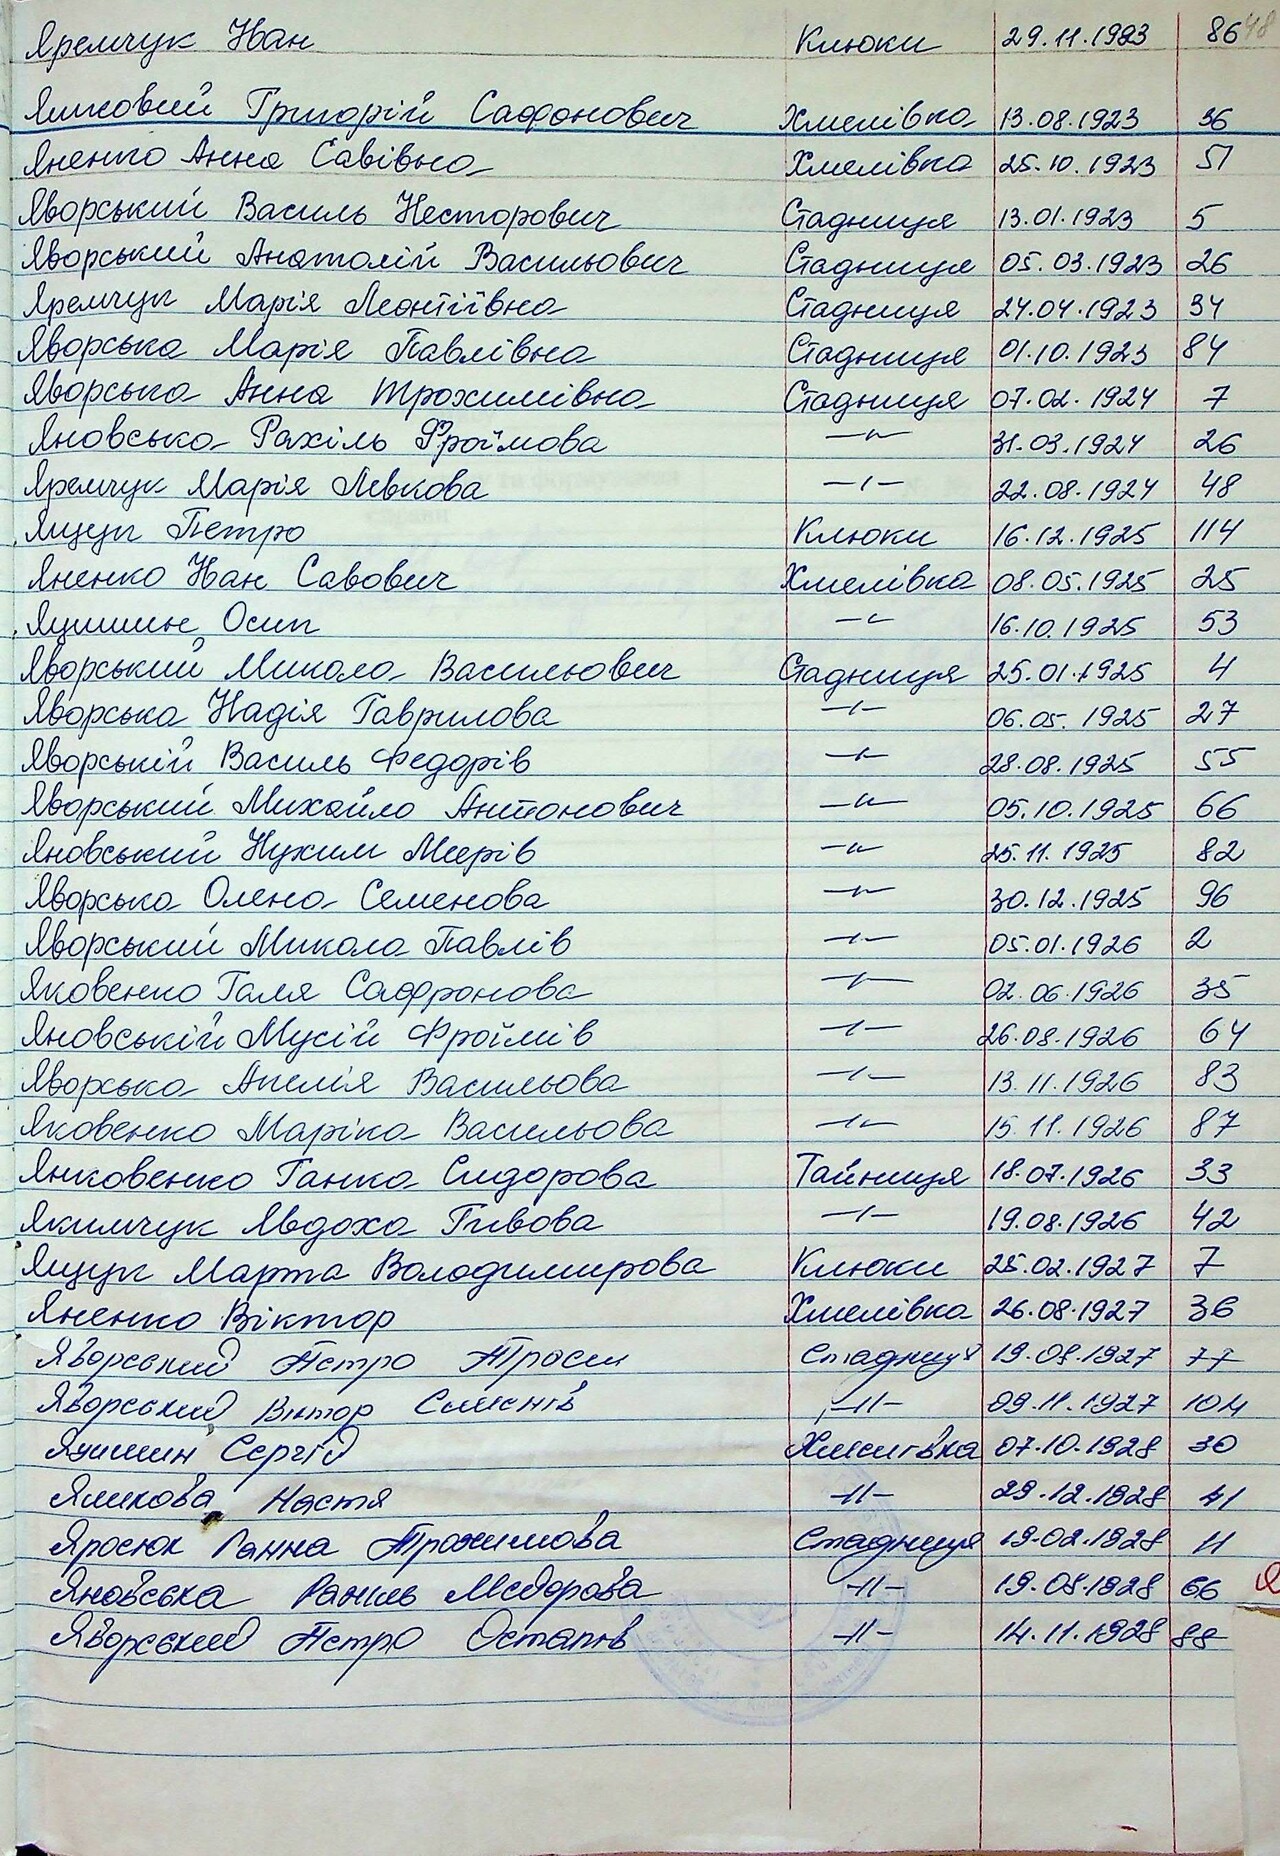 48
Яремчук Іван Клюки 29.11.1923 86
Ямковий Григорій Сафонович Хмелівка 13.08.1923 36
Яненко Анна Савівна Хмелівка 25.10.1923 51
Яворський Василь Несторович Стадниця 13.01.1923 5
Яворський Анатолій Васильович Стадниця 05.03.1923 26
Яремчук Марія Леонтіївна Стадниця 24.04.1923 34
Яворська Марія Павлівна Стадниця 01.10.1923 84
Яворська Анна Трохимівна Стадниця 07.02.1924 7
Яновська Рахіль Фроїмова —"— 31.03.1924 26
Яремчук Марія Левкова —"— 22.08.1924 48
Ящук Петро Клюки 16.12.1925 114
Яненко Іван Савович Хмелівка 08.05.1925 25
Яцишин Осип —"— 16.10.1925 53
Яворський Микола Васильович Стадниця 25.01.1925 4
Яворська Надія Гаврилова —"— 06.05.1925 27
Яворській Василь Федорів —"— 28.08.1925 55
Яворський Михайло Антонович —"— 05.10.1925 66
Яновський Нухим Меерів —"— 25.11.1925 82
Яворська Олена Семенова —"— 30.12.1925 96
Яворський Микола Павлів —"— 05.01.1926 2
Яковенко Галя Сафронова —"— 02.06.1926 35
Яновській Мусій Фроїмів —"— 26.08.1926 64
Яворська Анелія Васильова —"— 13.11.1926 83
Яковенко Маріка Васильова —"— 15.11.1926 87
Янковенко Ганка Сидорова Тайниця 18.07.1926 33
Якимчук Явдоха —"— 19.08.1926 42
Ящук Марта Володимирова Клюки 25.02.1927 7
Яненко Віктор Хмелівка 26.08.1927 36
Яворський Петро Стадниця 19.08.1927 77
Яворський Віктор Семенів —"— 09.11.1927 104
Яцишин Сергій Хмелівка 07.10.1928 30
Ямкова Настя —"— 29.12.1928 41
Яросюк Ганна Трохимова Стадниця 19.02.1928 11
Яновська Рахиль —"— 19.08.1928 66
Я
Яворський Петро Остапів —"— 14.11.1928 88